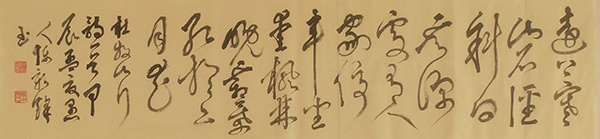 遠上寒
山石徑
斜白
雲深
處有人
家停
車坐
愛楓林
晚霜葉
紅於二
月花
杜牧山行
詩一首甲
辰
人